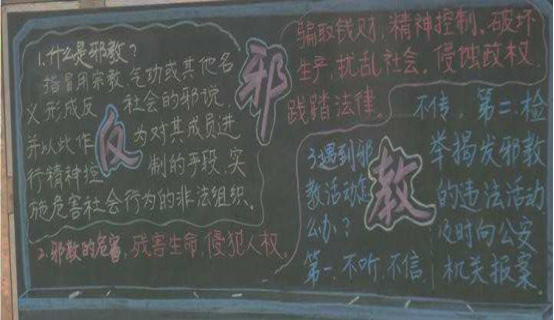 反邪教
1.什么是邪教?
指冒用宗教、气功或其他名
义形成反社会的邪说,
并以此作为对其成员进
行精神控制的手段,实
施危害社会行为的非法组织。
2.邪教的危害,残害生命,侵犯人权,
骗取钱财,精神控制、破坏
生产,扰乱社会,侵蚀政权
践踏法律。
3.遇到邪
教活动怎
么办?
第一.不听,不信
不传,第二.检
举揭发邪教
的违法活动
及时向公安
机关报案.